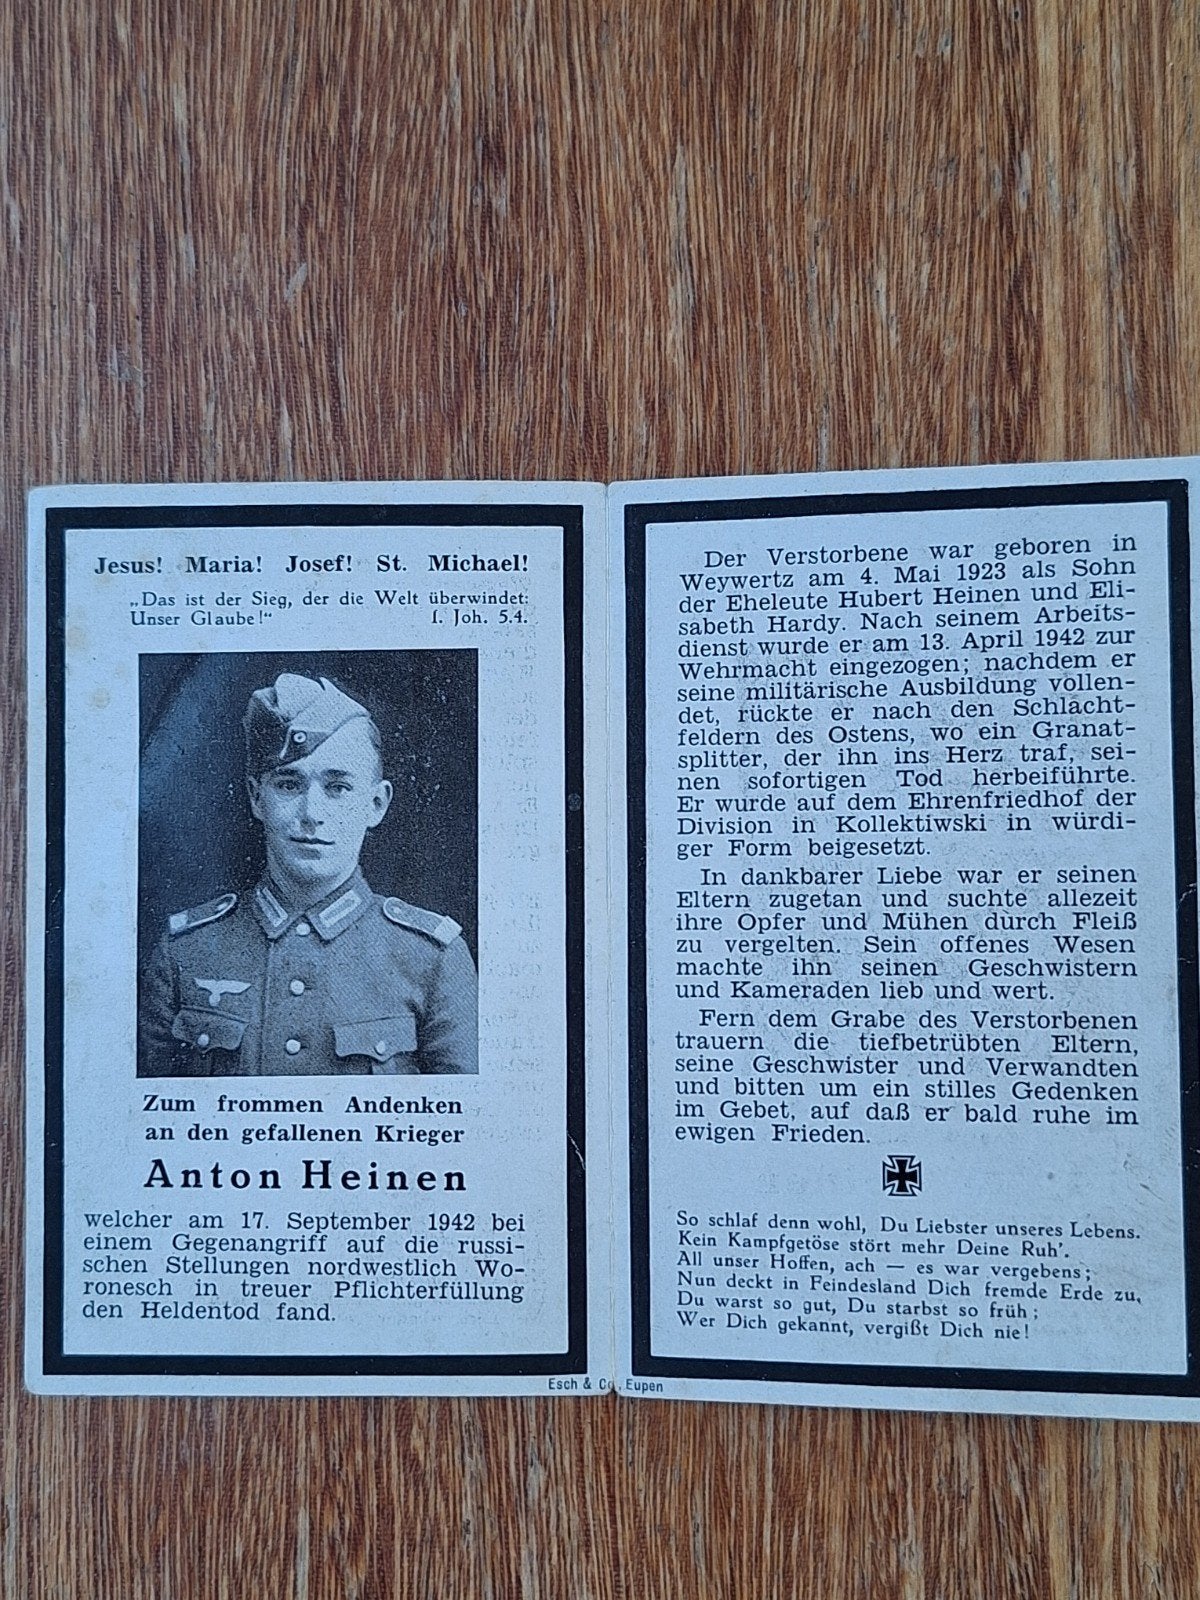 Jesus! Maria! Josef! St. Michael!
„Das ist der Sieg, der die Welt überwindet:
Unser Glaube!“ I. Joh. 5.4.
Zum frommen Andenken
an den gefallenen Krieger
Anton Heinen
welcher am 17. September 1942 bei
einem Gegenangriff auf die russi-
schen Stellungen nordwestlich Wo-
ronesch in treuer Pflichterfüllung
den Heldentod fand.
Der Verstorbene war geboren in
Weywertz am 4. Mai 1923 als Sohn
der Eheleute Hubert Heinen und Eli-
sabeth Hardy. Nach seinem Arbeits-
dienst wurde er am 13. April 1942 zur
Wehrmacht eingezogen; nachdem er
seine militärische Ausbildung vollen-
det, rückte er nach den Schlacht-
feldern des Ostens, wo ein Granat-
splitter, der ihn ins Herz traf, sei-
nen sofortigen Tod herbeiführte.
Er wurde auf dem Ehrenfriedhof der
Division in Kollektiwski in würdi-
ger Form beigesetzt.
In dankbarer Liebe war er seinen
Eltern zugetan und suchte allezeit
ihre Opfer und Mühen durch Fleiß
zu vergelten. Sein offenes Wesen
machte ihn seinen Geschwistern
und Kameraden lieb und wert.
Fern dem Grabe des Verstorbenen
trauern die tiefbetrübten Eltern,
seine Geschwister und Verwandten
und bitten um ein stilles Gedenken
im Gebet, auf daß er bald ruhe im
ewigen Frieden.
So schlaf denn wohl, Du Liebster unseres Lebens.
Kein Kampfgetöse stört mehr Deine Ruh'.
All unser Hoffen, ach — es war vergebens;
Nun deckt in Feindesland Dich fremde Erde zu,
Du warst so gut, Du starbst so früh;
Wer Dich gekannt, vergißt Dich nie!
Esch & Co, Eupen